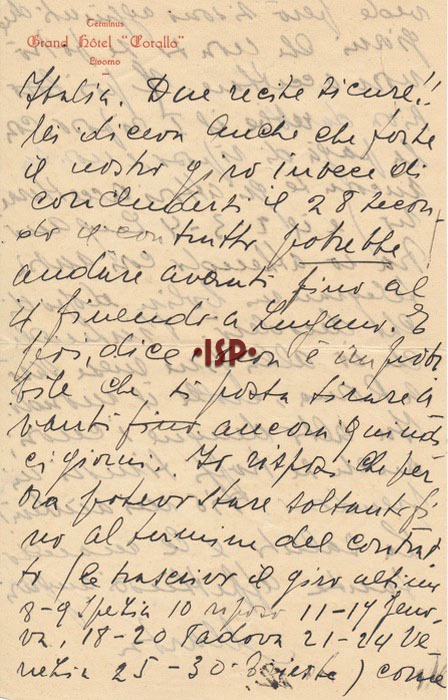 Terminus
Grand Hôtel "Corallo"
Livorno
Italia. Due recite sicure!!
lei diceva anche che forse
il nostro giro invece di
concludersi il 28 secon-
do il contratto potrebbe
andare avanti fino al
finendo a Lugano. E
poi, dice non è impossi
bile che si possa tirare a
vanti fino ancora quindi
ci giorni. Io risposi che per
ora potevo stare soltanto fi
no al termine del contrat
to (le trascrivo il giro
8-9 Spezia 10 riposo 11-17 Geno-
va, 18-20 Padova 21-24 Ve-
nezia 25-30 Trieste) come
ISP